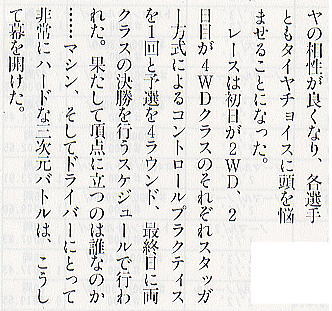 ヤの相性が良くなり、各選手
ともタイヤチョイスに頭を悩
ませることになった。
レースは初日が2WD、2
日目が4WDクラスのそれぞれスタッガ
ー方式によるコントロールプラクティス
を1回と予選を4ラウンド、最終日に両
クラスの決勝を行うスケジュールで行わ
れた。果たして頂点に立つのは誰なのか
……マシン、そしてドライバーにとって
非常にハードな三次元バトルは、こうし
て幕を開けた。